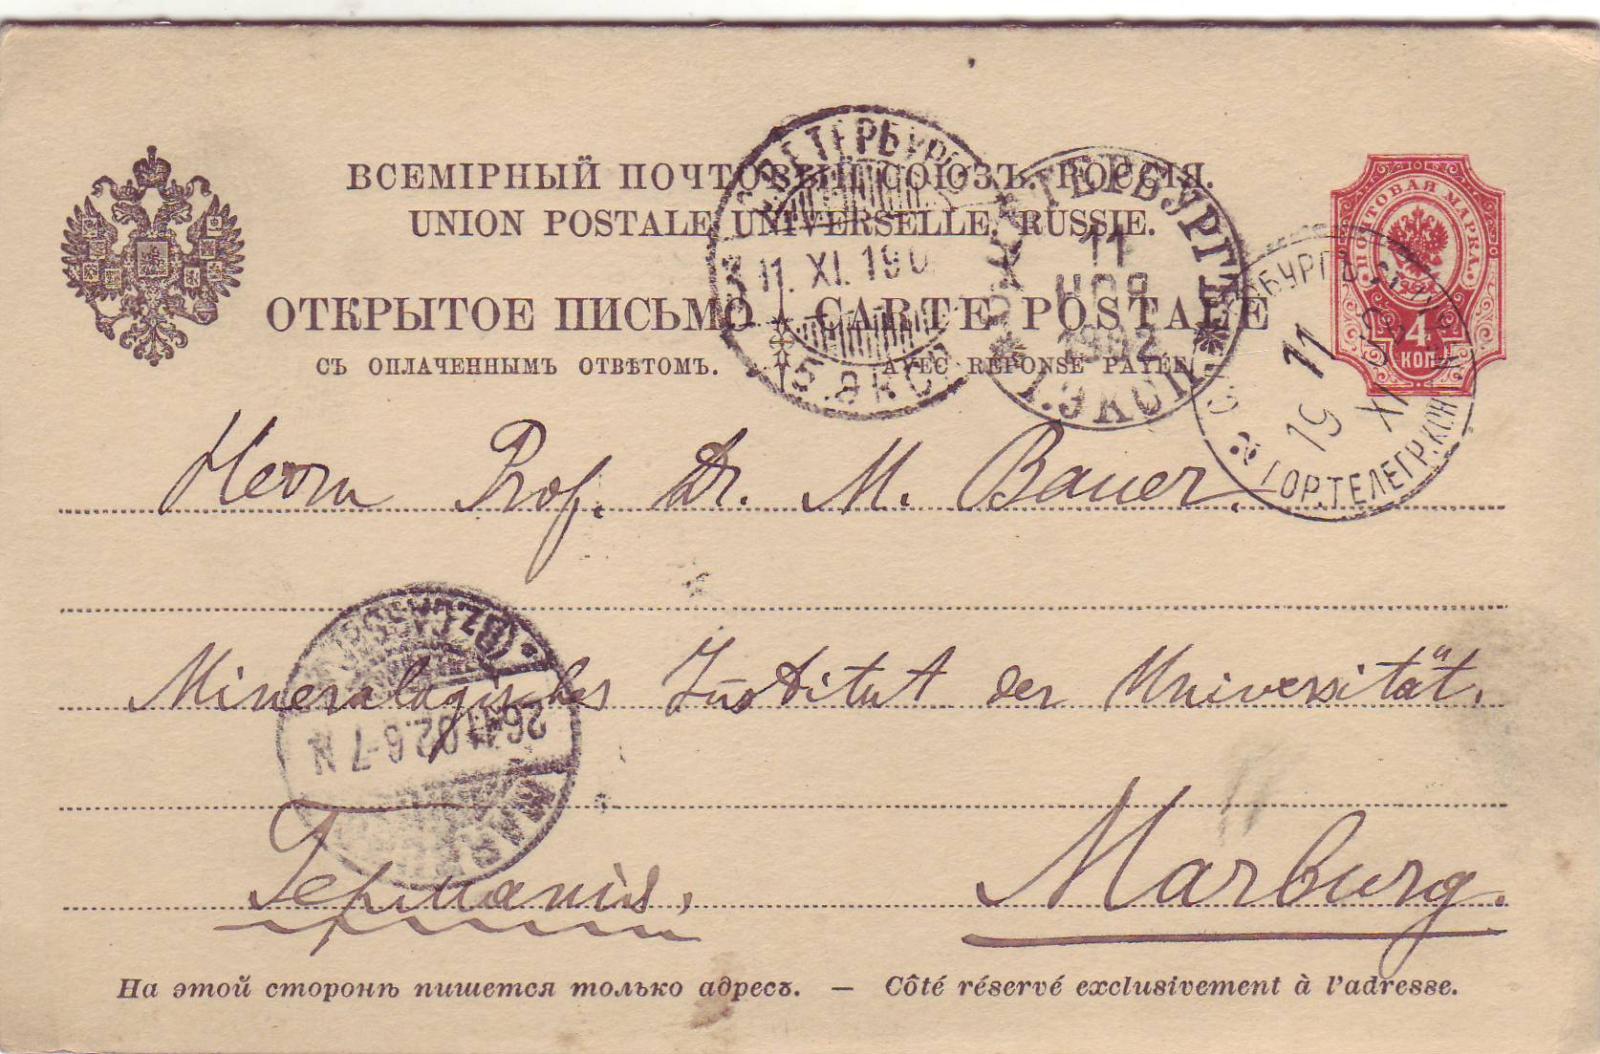 ВСЕМІРНЫЙ ПОЧТОВЫЙ СОЮЗЪ. РОССІЯ.
UNION POSTALE UNIVERSELLE. RUSSIE.
ОТКРЫТОЕ ПИСЬМО CARTE POSTALE
СЪ ОПЛАЧЕННЫМЪ ОТВѢТОМЪ. AVEC RÉPONSE PAYÉE
ПОЧТОВАЯ МАРКА.
4
КОП
С.ПЕТЕРБУРГЪ
11.XI.190
ЭКСП
ПЕТЕРБУРГЪ
11
НОЯ
1902
1.ЭКСП
11
XI
19
ГОР.ТЕЛЕГР.КОН
Herrn Prof. Dr. M. Bauer.
(BZ. CASSEL)
Mineralogisches Institut der Universität.
26.11.02.6-7 N
MARBURG
Германія, Marburg.
На этой сторонѣ пишется только адресъ. — Côté réservé exclusivement à l'adresse.